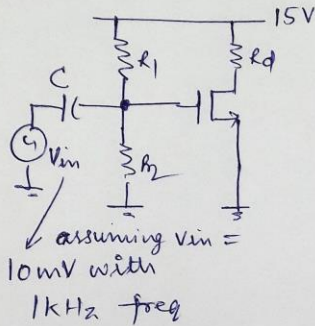 15V
R1
Rd
C
Vin
R2
assuming Vin =
10mV with
1kHz freq